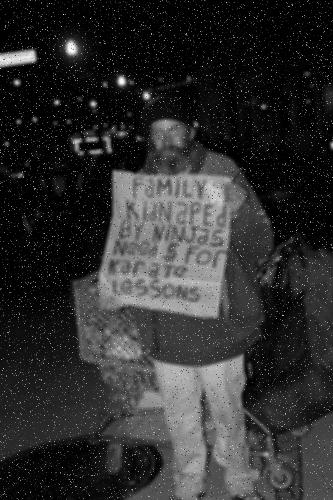 FaMILY
KIDNAPED
BY NINJAS
NEED $ FOR
KaraTe
LESSONS